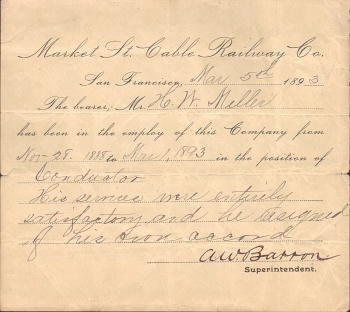 Market St. Cable Railway Co.
San Francisco, Mar 5th 1893
The bearer, Mr. H. W. Miller
has been in the employ of this Company from
Nov-28. 1888 to Mar 1, 1893 in the position of
Conductor
His services were entirely
satisfactory and he resigned
of his own accord
A.W. Barron
Superintendent.